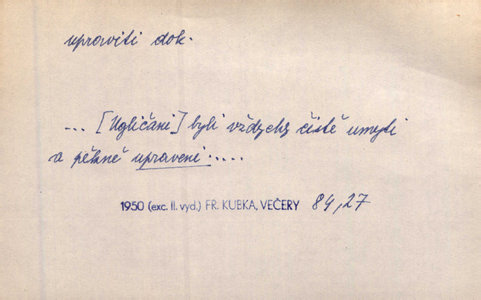 upraviti dok.
... [Ugličani] byli vždycky čistě umyti
a pěkně upraveni.....
1950 (exc. II. vyd.) FR. KUBKA, VEČERY 84,27